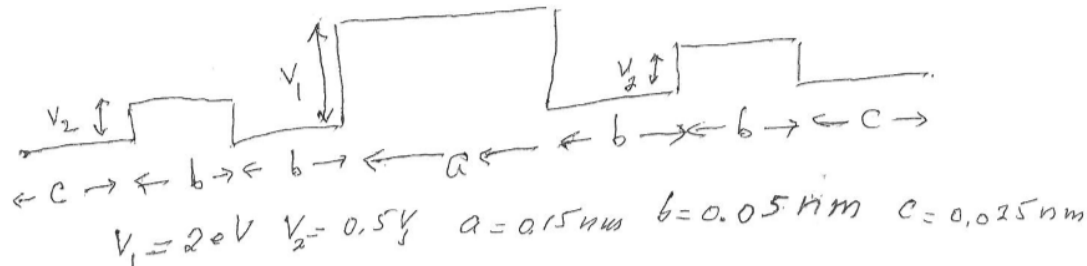 V₁
V₂
V₂
← c → ← b → ← b → ← a ← ← b → ← b → ← c →
V₁ = 2eV V₂ = 0.5V, a = 0.15nm b = 0.05nm c = 0.025nm